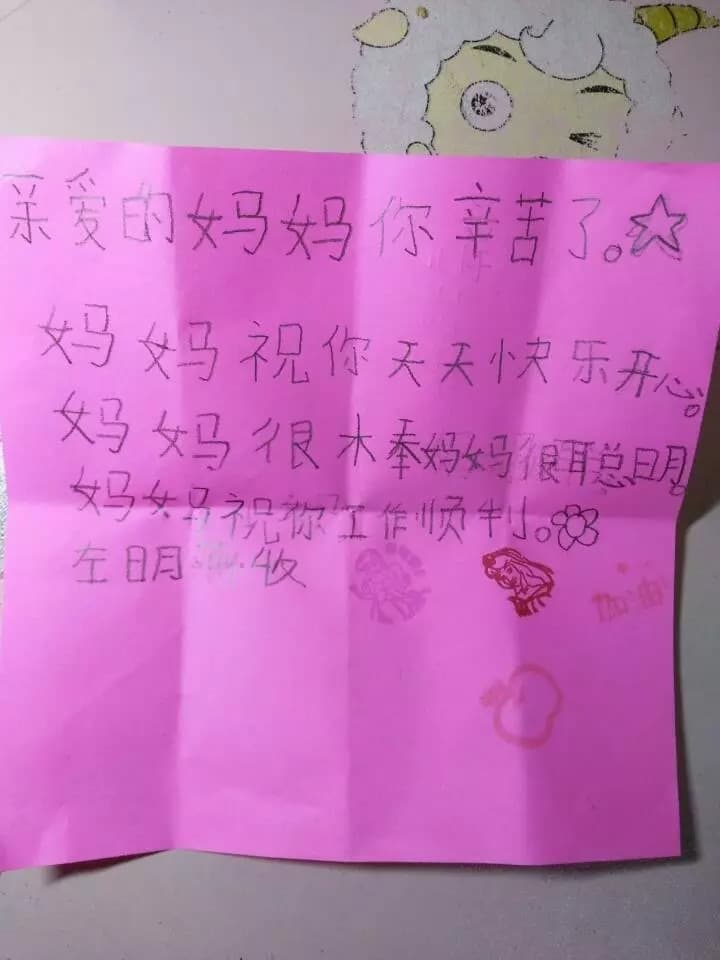 亲爱的妈妈你辛苦了。
妈妈祝你天天快乐开心。
妈妈很木奉妈妈很聪明。
妈妈祝你工作顺利。
左明 收